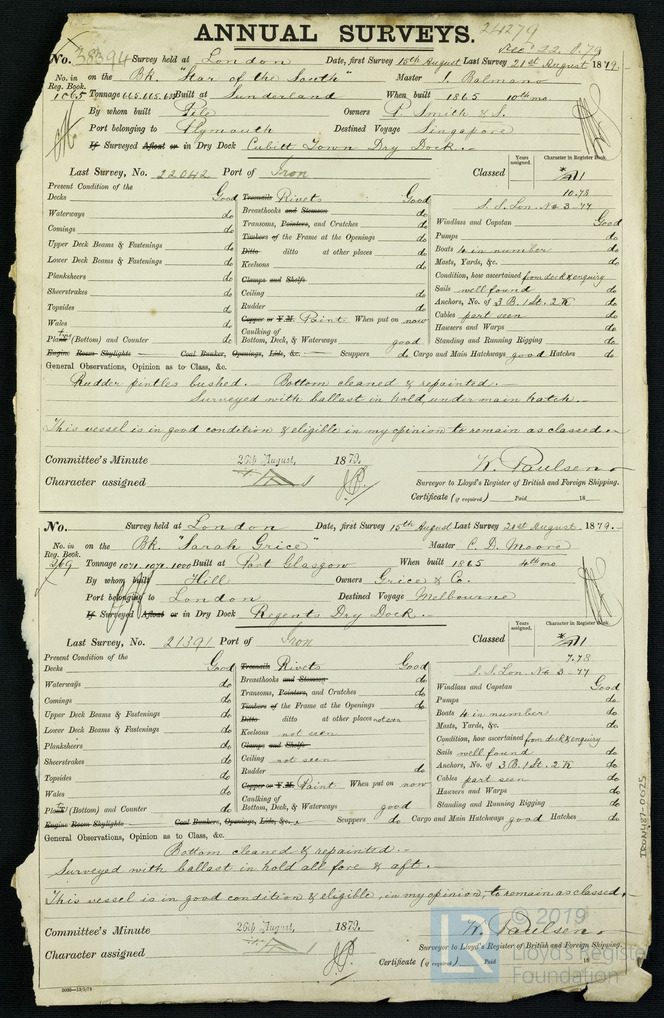 ANNUAL SURVEYS.
24279
Dec 22. 8.79
No. 38394 Survey held at London Date, first Survey 15th August Last Survey 21st August 1879.
No. in Reg. Book. on the Bk. "Star of the South" Master J. Balmano
1065 Tonnage 665.665.635 Built at Sunderland When built 1865 10th mo.
By whom built Pile Owners P. Smith & S.
Port belonging to Plymouth Destined Voyage Singapore
If Surveyed Afloat or in Dry Dock Cubitt Town Dry Dock.
Last Survey, No. 22042 Port of Iron Classed
Years assigned. Character in Register Book.
10.78
S. S. Lon. No. 3 - 77
Present Condition of the
Decks Good Treenails Rivets Good
Waterways do Breasthooks and Stemson do Windlass and Capstan Good
Comings do Transoms, Pointers, and Crutches do Pumps do
Upper Deck Beams & Fastenings do Timbers of the Frame at the Openings do Boats 4 in number do
Lower Deck Beams & Fastenings do Ditto ditto at other places do Masts, Yards, &c. do
Planksheers do Keelsons do Condition, how ascertained from deck & enquiry
Sheerstrakes do Clamps and Shelfs Sails well found do
Topsides do Ceiling do Anchors, No. of 3 B. 1 St. 2 K do
Wales do Rudder do Cables part seen do
Plates (Bottom) and Counter do Copper or Y.M. Paint When put on now Hausers and Warps do
Caulking of Bottom, Deck, & Waterways good Standing and Running Rigging do
Engine Room Skylights Coal Bunker, Openings, Lids, &c. Scuppers do Cargo and Main Hatchways good Hatches do
General Observations, Opinion as to Class, &c.
Rudder pintles bushed. Bottom cleaned & repainted.
Surveyed with ballast in hold, under main hatch.
This vessel is in good condition & eligible in my opinion to remain as classed.
Committee's Minute 26th August, 1879.
Character assigned
W. Paulsen
Surveyor to Lloyd's Register of British and Foreign Shipping.
Certificate (if required) Paid 18
No. Survey held at London Date, first Survey 15th August Last Survey 21st August 1879.
No. in Reg. Book. on the Bk. "Sarah Grice" Master C. D. Moore
269 Tonnage 1071.1071.1000 Built at Port Glasgow When built 1865 4th mo
By whom built Hill Owners Grice & Co.
Port belonging to London Destined Voyage Melbourne
If Surveyed Afloat or in Dry Dock Regents Dry Dock.
Last Survey, No. 21391 Port of Iron Classed
Years assigned. Character in Register Book.
7.78
S. S. Lon. No. 3 - 77
Present Condition of the
Decks Good Treenails Rivets Good
Waterways do Breasthooks and Stemson do Windlass and Capstan Good
Comings do Transoms, Pointers, and Crutches do Pumps do
Upper Deck Beams & Fastenings do Timbers of the Frame at the Openings do Boats 4 in number do
Lower Deck Beams & Fastenings do Ditto ditto at other places not seen Masts, Yards, &c. do
Planksheers do Keelsons not seen Condition, how ascertained from deck & enquiry
Sheerstrakes do Clamps and Shelfs Sails well found do
Topsides do Ceiling not seen Anchors, No. of 3 B. 1 St. 2 K do
Wales do Rudder do Cables part seen do
Plates (Bottom) and Counter do Copper or Y.M. Paint When put on now Hausers and Warps do
Caulking of Bottom, Deck, & Waterways good Standing and Running Rigging do
Engine Room Skylights Coal Bunkers, Openings, Lids, &c. Scuppers do Cargo and Main Hatchways good Hatches do
General Observations, Opinion as to Class, &c.
Bottom cleaned & repainted.
Surveyed with ballast in hold all fore & aft.
This vessel is in good condition & eligible, in my opinion, to remain as classed.
Committee's Minute 26th August, 1879.
Character assigned
W. Paulsen
Surveyor to Lloyd's Register of British and Foreign Shipping.
Certificate (if required) Paid 18
IRON487-0025
LR © 2019
Lloyd's Register
Foundation